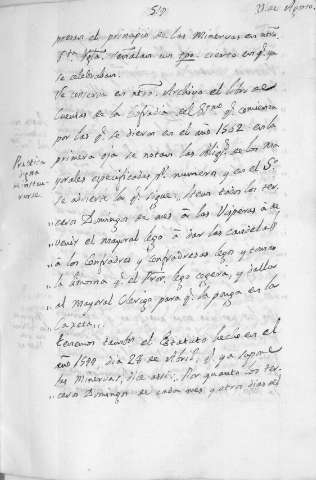 51.
31 de Agosto.
prevan el principio de las Minervas en ntra.
Yga. señalan un tpo. cierto en q. ya
se celebraban.
Se conserva en ntro. Archivo el libro de
Cuentas de la Cofradia del SSmo. q. comienza
por las q. se dieron en el año 1562. en la
primera oja se notan las oblig.s de los ma-
Practica
digna
de
varse
yorales especificadas pr. numeros, y en el 5º
se advierte lo q. sigue: Item todos los ter-
ceros Domingos de mes à las Visperas à de
venir el mayoral lego à dar las candelas
à los Confradres y confradresas legos y tomar
la limosna q. el Prior, lego cogera, y dallas
al mayoral Clerigo para q. la ponga en la
caxeta.
tenemos tambn. el Estatuto hecho en el
año 1590, dia 28 de Abril, q. ya supone
las Minervas, dice assi: Por quanto los ter-
ceros Domingos de cada mes y otros dias del